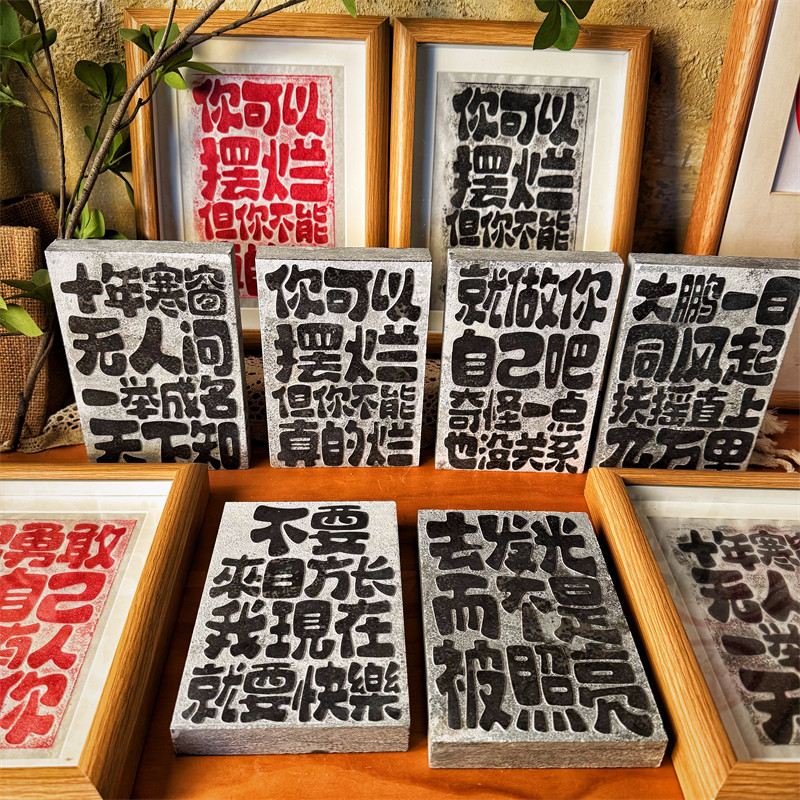 你可以
摆烂
但你不能
你可以
摆烂
但你不能
十年寒窗
无人问
一举成名
天下知
你可以
摆烂
但你不能
真的烂
就做你
自己吧
奇怪一点
也没关系
大鹏一日
同风起
扶摇直上
九万里
勇敢
自己
有人
你
不要
來日方长
我現在
就要快樂
去发光
而不是
被照亮
十年寒
无人
一举